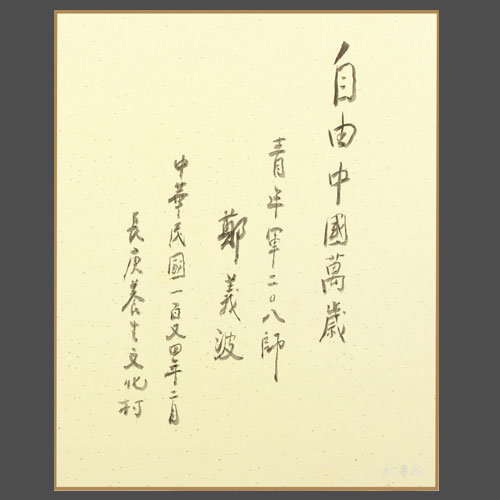 自由中國萬歲
青年軍二〇八師
鄭義波
中華民國一百又四年二月
長庚養生文化村